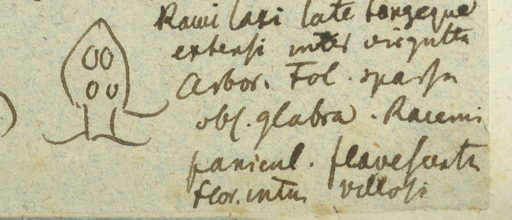 Rami laxi late longeque
extensi inter virgulta
Arbor. Fol. sparsa
obl. glabra. Racemi
panicul. flavescentes
Flor. intus villosi